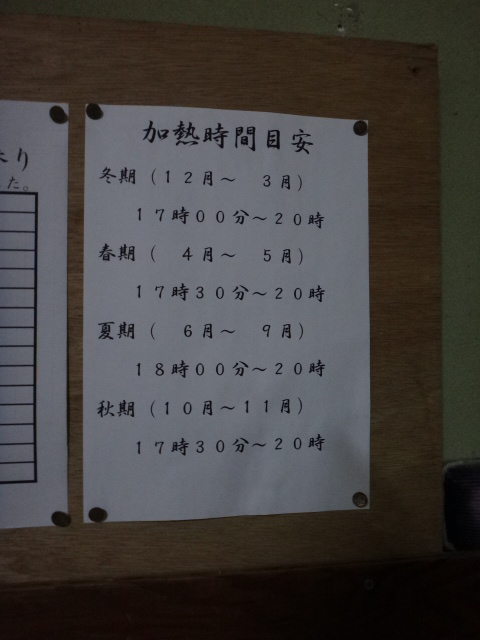 より
た。
加熱時間目安
冬期（１２月～　３月）
１７時００分～２０時
春期（　４月～　５月）
１７時３０分～２０時
夏期（　６月～　９月）
１８時００分～２０時
秋期（１０月～１１月）
１７時３０分～２０時